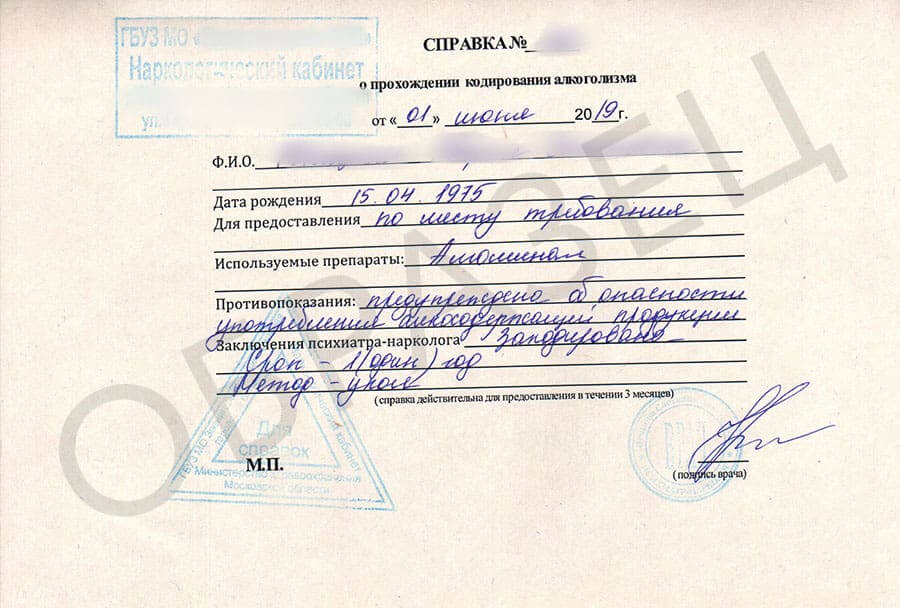 ГБУЗ МО «
Наркологический кабинет
ул.
СПРАВКА №
о прохождении кодирования алкоголизма
от «01» июня 2019 г.
Ф.И.О.
Дата рождения 15.04.1975
Для предоставления по месту требования
Используемые препараты: Алгоминал
Противопоказания: предупреждено об опасности
употребления продукции
Заключения психиатра-нарколога Закодирована
Срок - 1 (один) год
Метод - укол
(справка действительна для предоставления в течении 3 месяцев)
ГБУЗ МО
кабинет
Для
справок
Министерство здравоохранения
Московской области
М.П.
ВРАЧ
(подпись врача)
ОБРАЗЕЦ